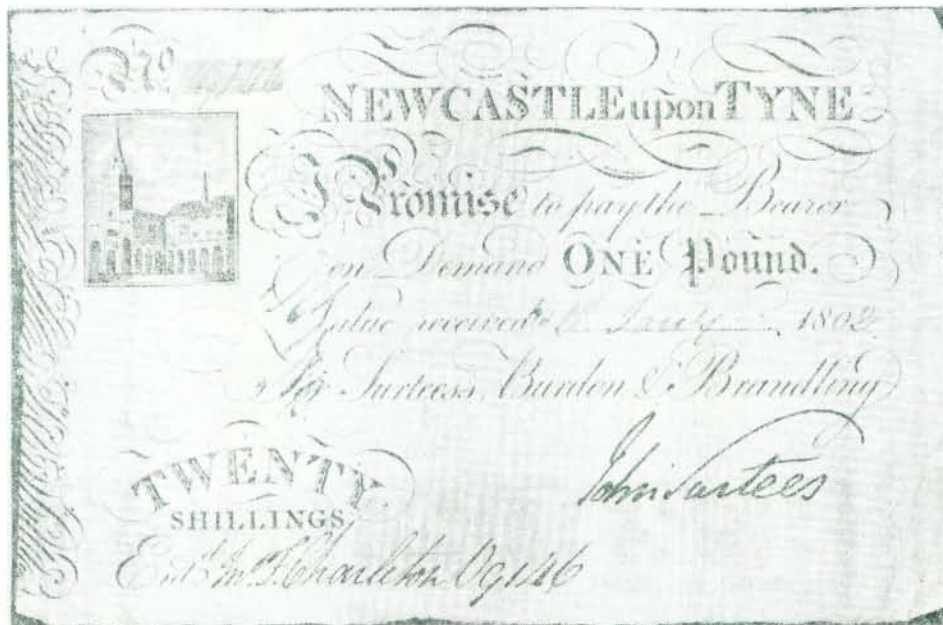 No
NEWCASTLE upon TYNE
I Promise to pay the Bearer
on Demand ONE Pound.
Value received 1802
For Surtees, Burdon & Brandling
John Surtees
TWENTY
SHILLINGS
Entd Charleton O9146